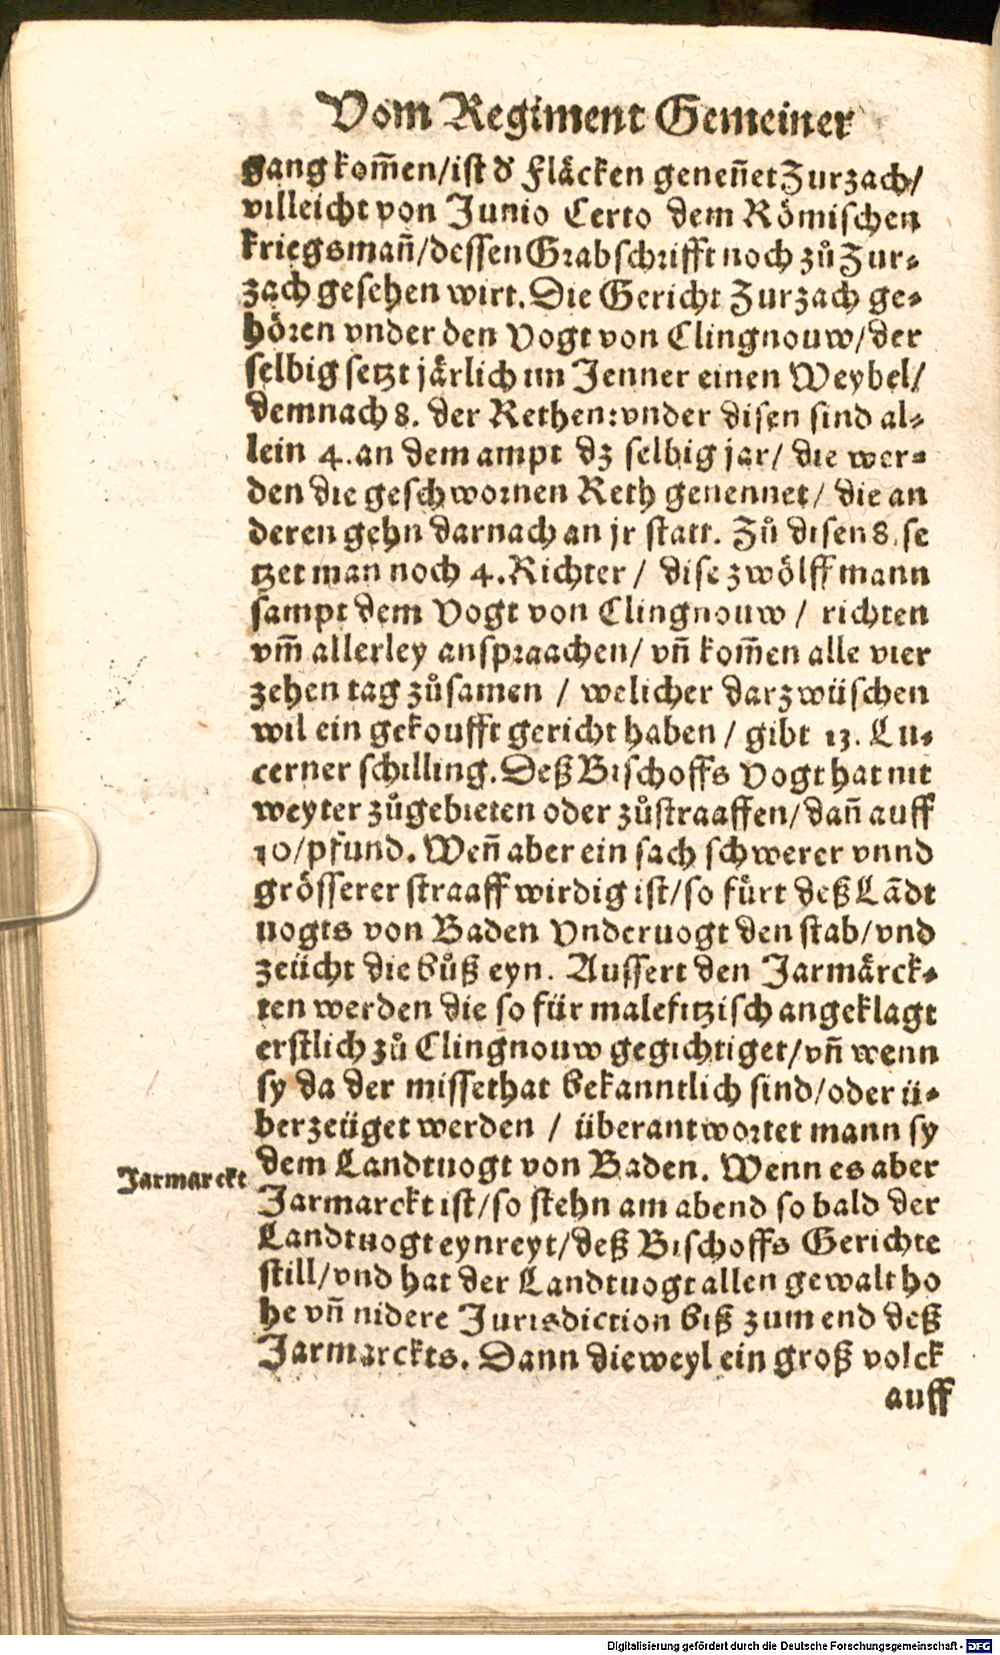 Vom Regiment Gemeiner
gang kom̄en/ist d' Fläcken genen̄et Zurzach/
villeicht von Junio Certo dem Römischen
kriegsman̄/dessen Grabschrifft noch zů Zur-
zach gesehen wirt. Die Gericht Zurzach ge-
hören vnder den Vogt von Clingnouw/der
selbig setzt järlich im Jenner einen Weybel/
demnach 8. der Rethen: vnder disen sind al-
lein 4. an dem ampt dz selbig jar/ die wer-
den die geschwornen Reth genennet/ die an
deren gehn darnach an jr statt. Zů disen 8. se
tzet man noch 4. Richter/ dise zwölff mann
sampt dem Vogt von Clingnouw/ richten
vm̄ allerley anspraachen/ vn̄ kom̄en alle vier
zehen tag zůsamen / welicher darzwüschen
wil ein gekoufft gericht haben / gibt 13. Lu-
cerner schilling. Deß Bischoffs Vogt hat nit
weyter zůgebieten oder zůstraaffen/dan̄ auff
10/pfund. Wen̄ aber ein sach schwerer vnnd
grösserer straaff wirdig ist/so fürt deß Lādt
uogts von Baden Vnderuogt den stab/vnd
zeücht die bůß eyn. Aussert den Jarmärck-
ten werden die so für malefitzisch angeklagt
erstlich zů Clingnouw gegichtiget/vn̄ wenn
sy da der missethat bekanntlich sind/oder ü-
berzeüget werden / überantwortet mann sy
dem Landtuogt von Baden. Wenn es aber
Jarmarckt
Jarmarckt ist/so stehn am abend so bald der
Landtuogt eynreyt/deß Bischoffs Gerichte
still/vnd hat der Landtuogt allen gewalt ho
he vn̄ nidere Jurisdiction biß zum end deß
Jarmarckts. Dann dieweyl ein groß volck
auff
Digitalisierung gefördert durch die Deutsche Forschungsgemeinschaft - DFG